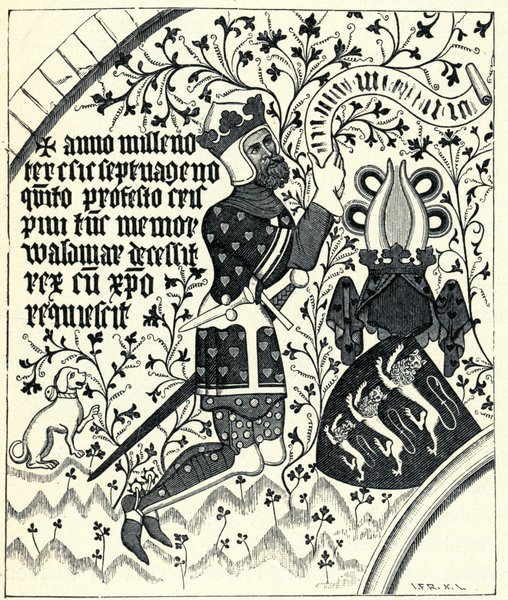 ✠ anno milleno
ter c sic septuageno
qūito profesto cris
pini tūc memor
waldmar decessit
rex cū xp̄o
requiescit
I.FR.X.L.